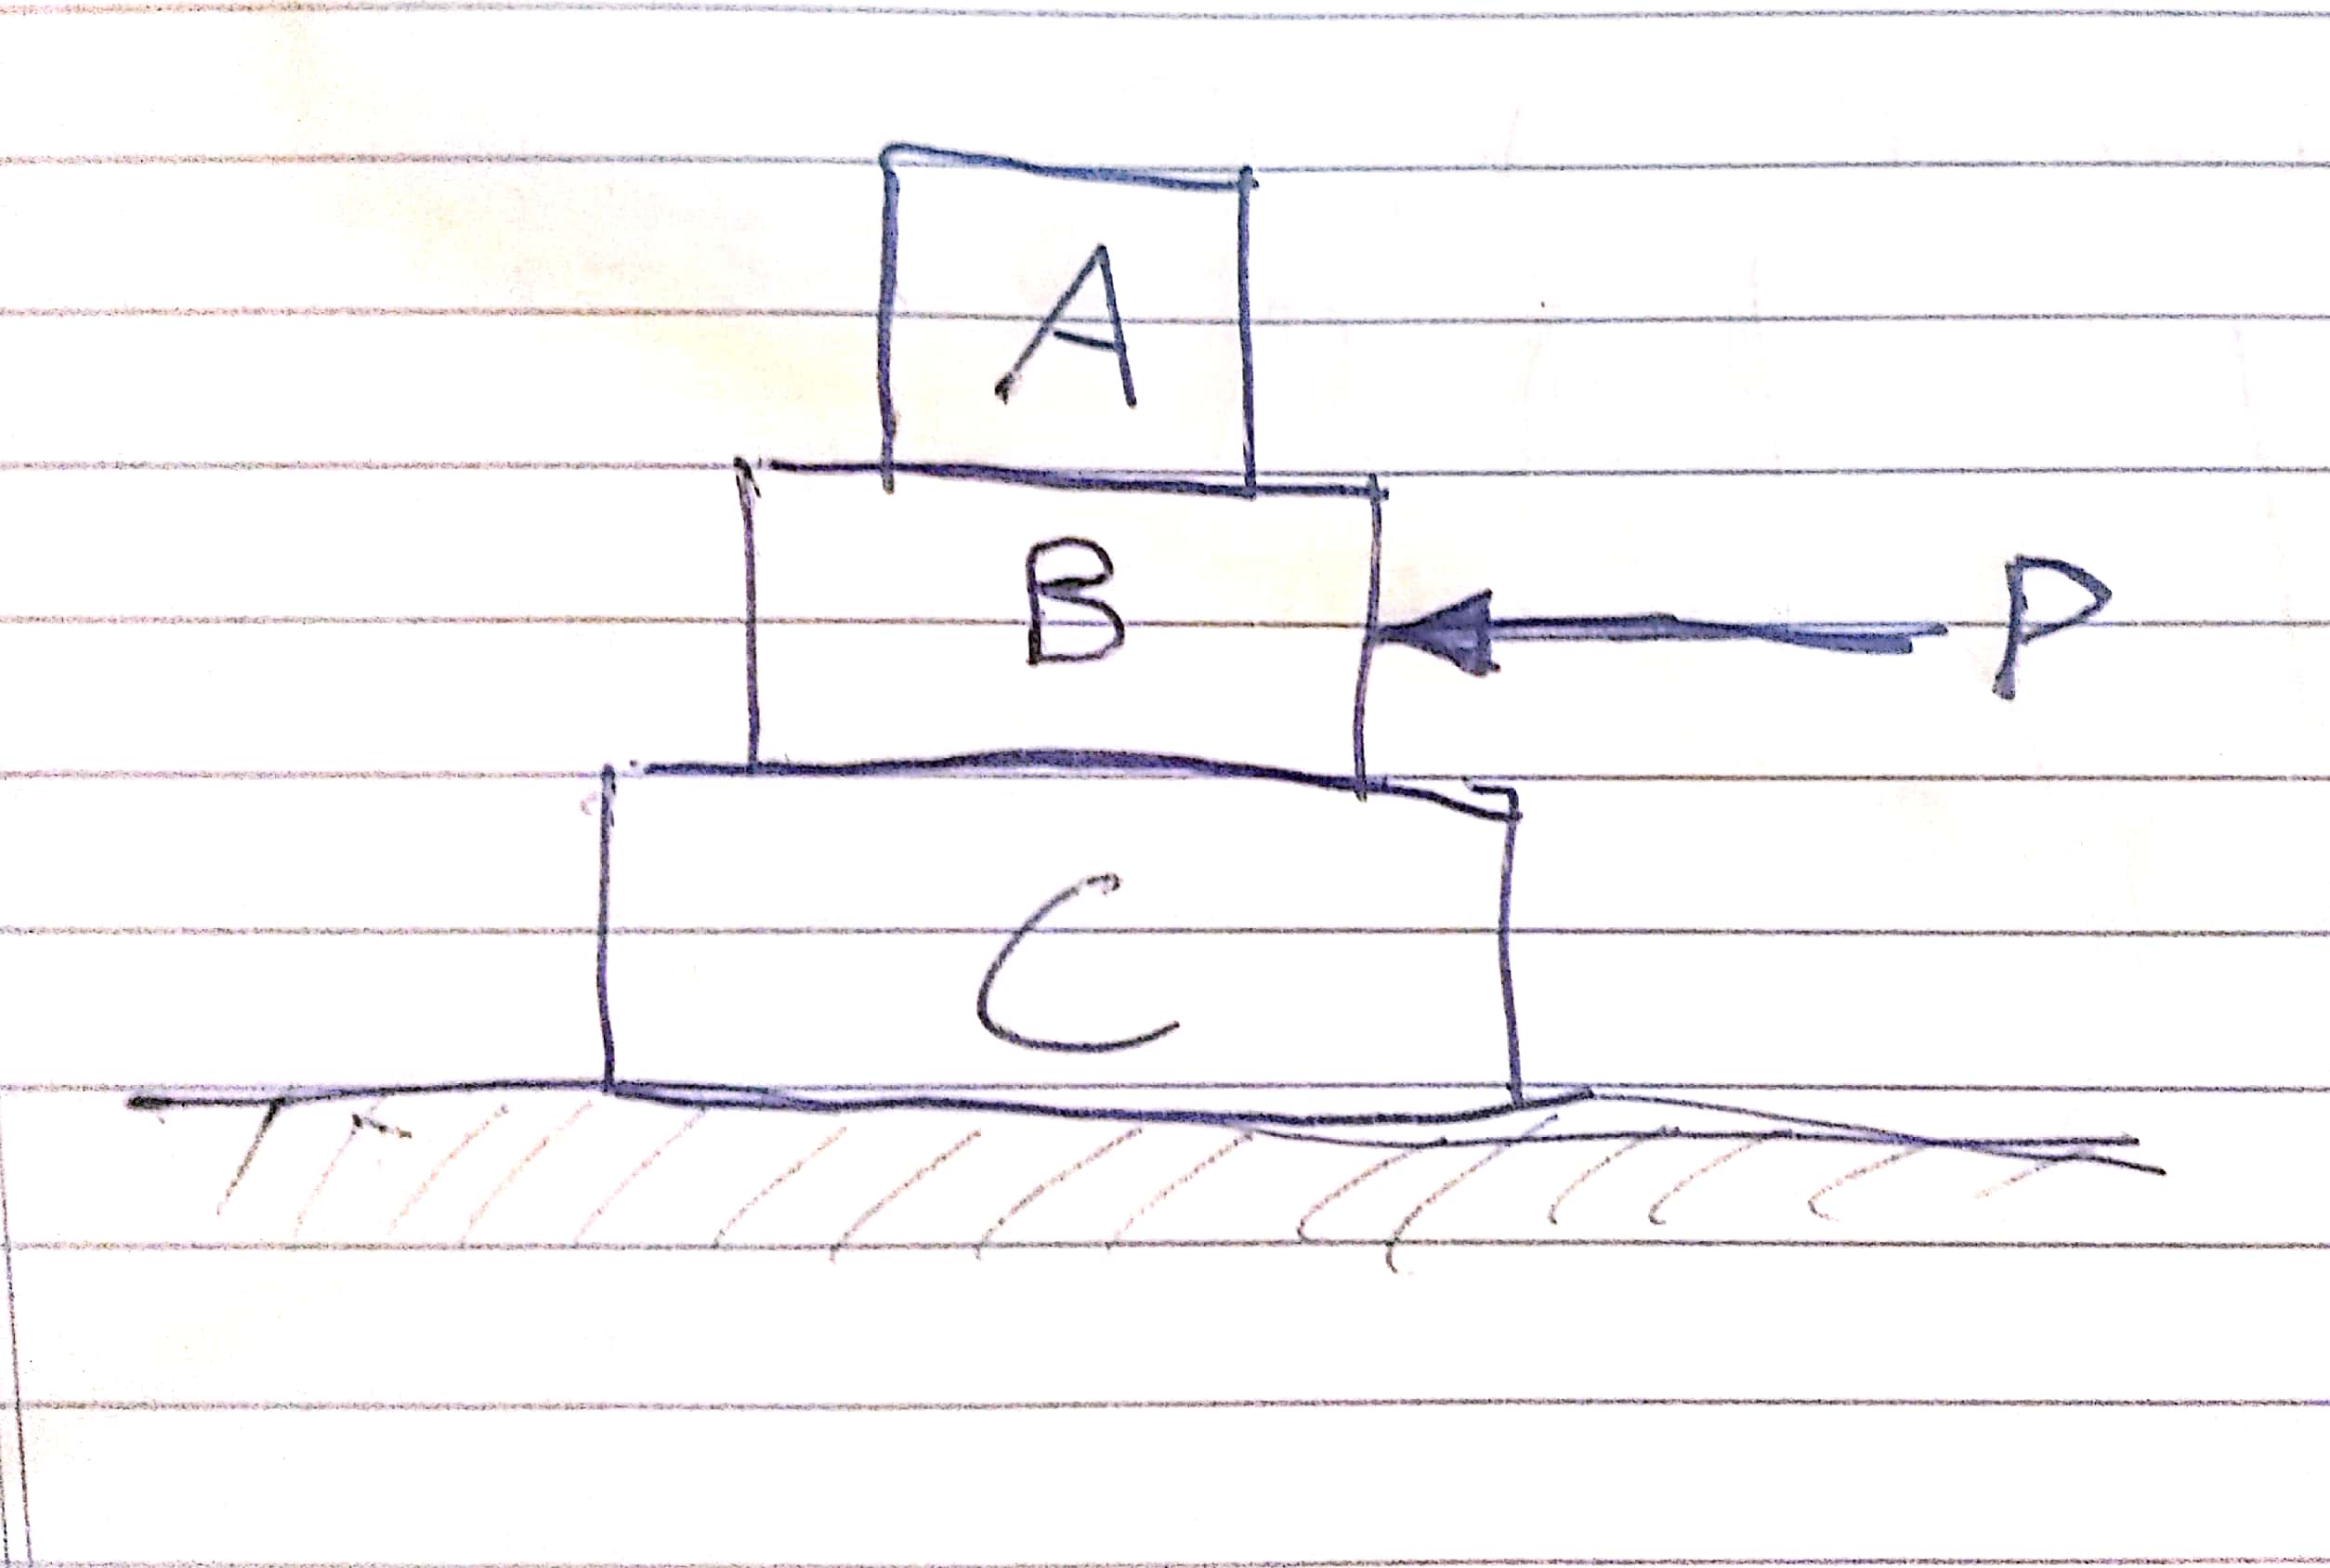 A
B
P
C